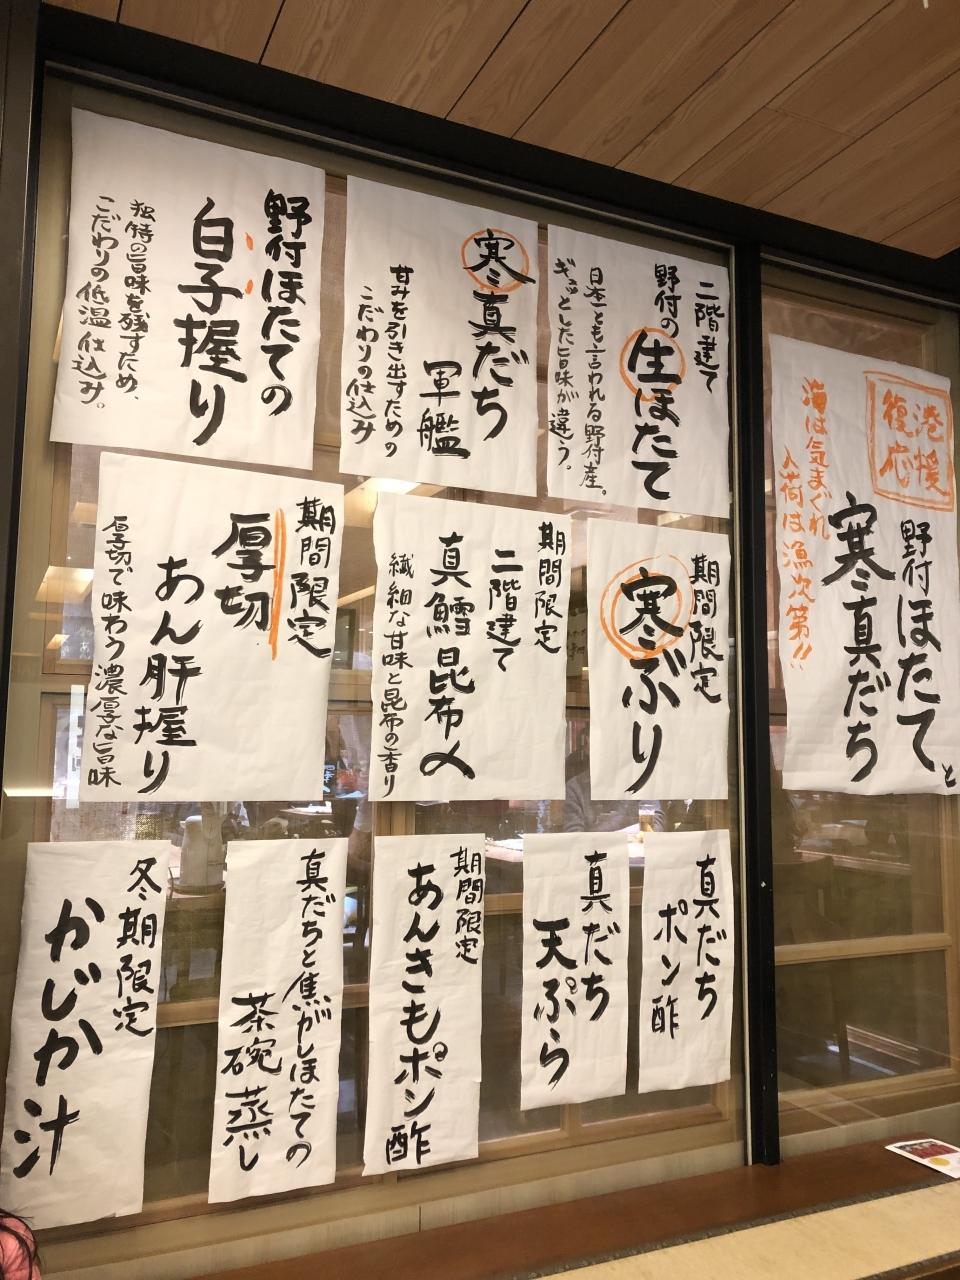 港
復
援
応
野付ほたてと
寒真だち
海は気まぐれ
入荷は漁次第!!
二階建て
野付の
生ほたて
日本一とも言われる野付産。
ギュッとした旨味が違う。
寒真だち
軍艦
甘みを引き出すための
こだわりの仕込み
野付ほたての
白子握り
独特の旨味を残すため、
こだわりの低温仕込み。
期間限定
寒ぶり
期間限定
二階建て
真鱈昆布〆
繊細な甘味と昆布の香り
期間限定
厚切
あん肝握り
厚切で味わう濃厚な旨味
真だち
ポン酢
真だち
天ぷら
期間限定
あんきもポン酢
真だちと焦がしほたての
茶碗蒸し
冬期限定
かじか汁